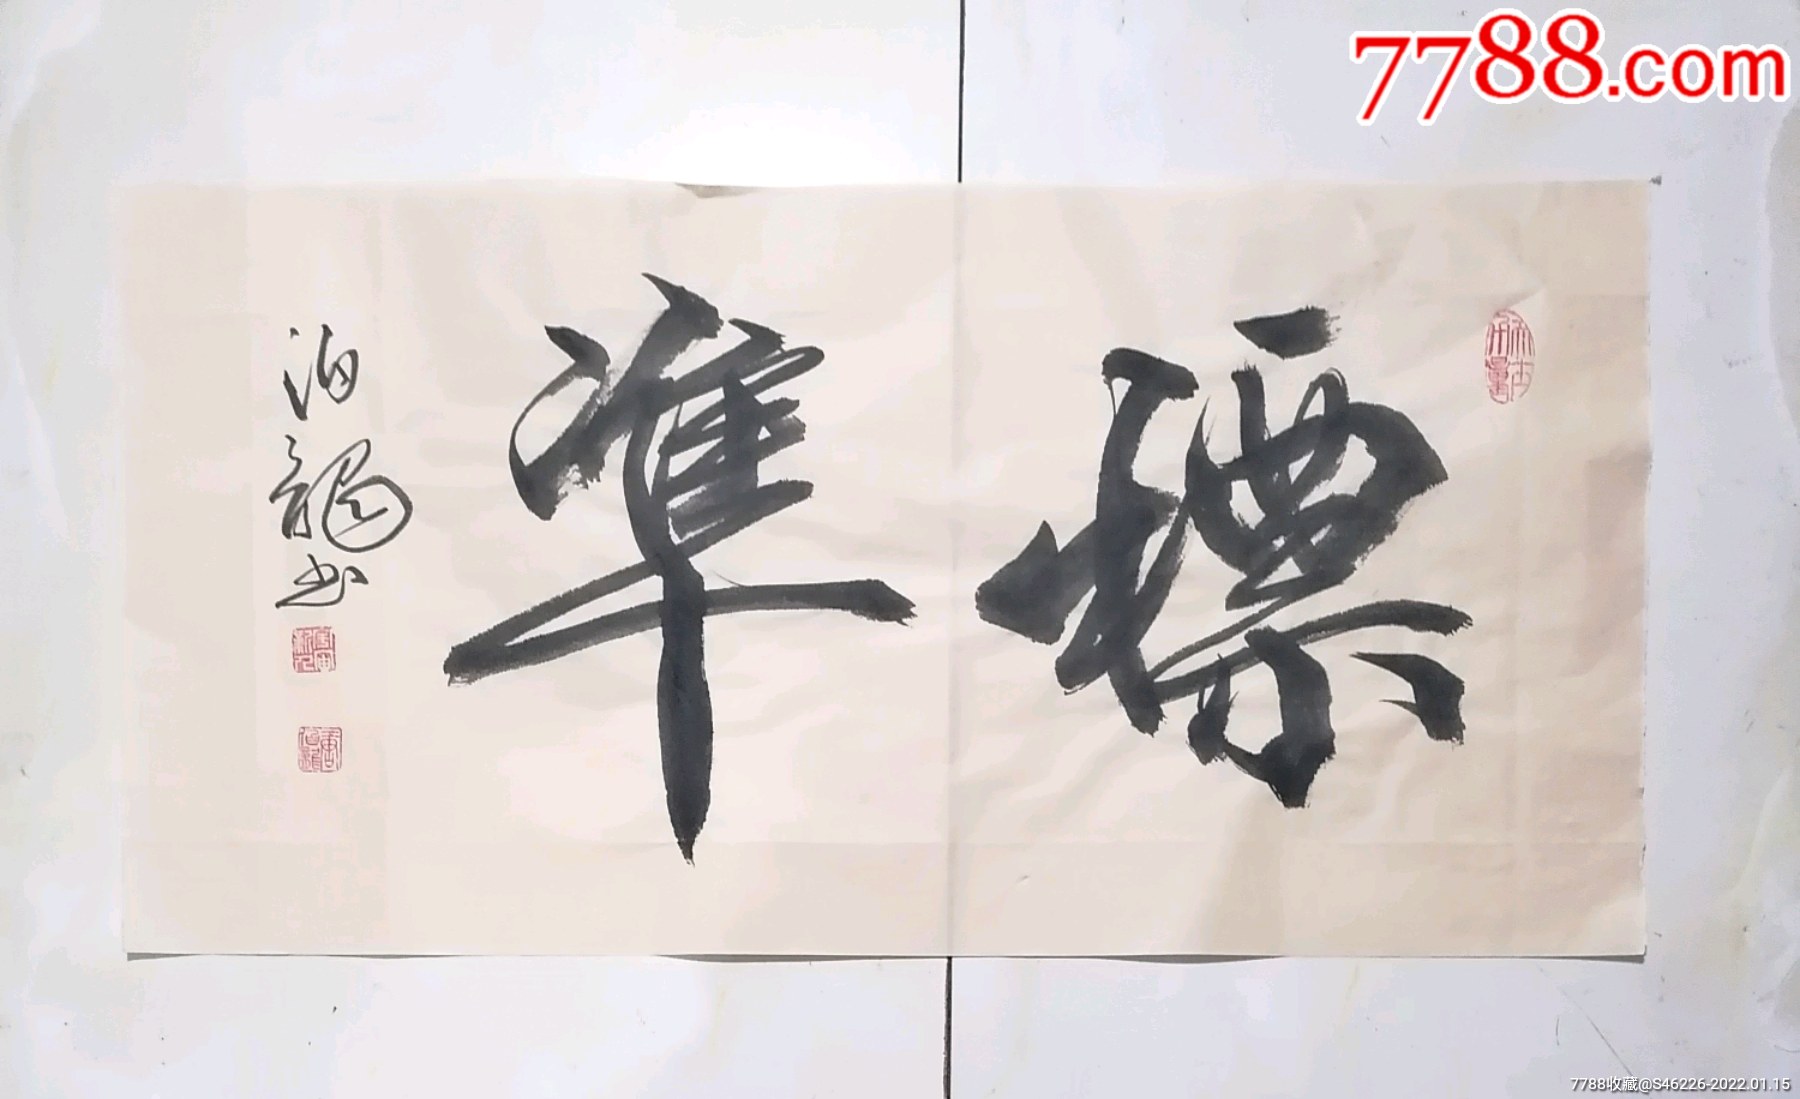 7788.com
標準
泊龍书
7788收藏@S46226-2022.01.15